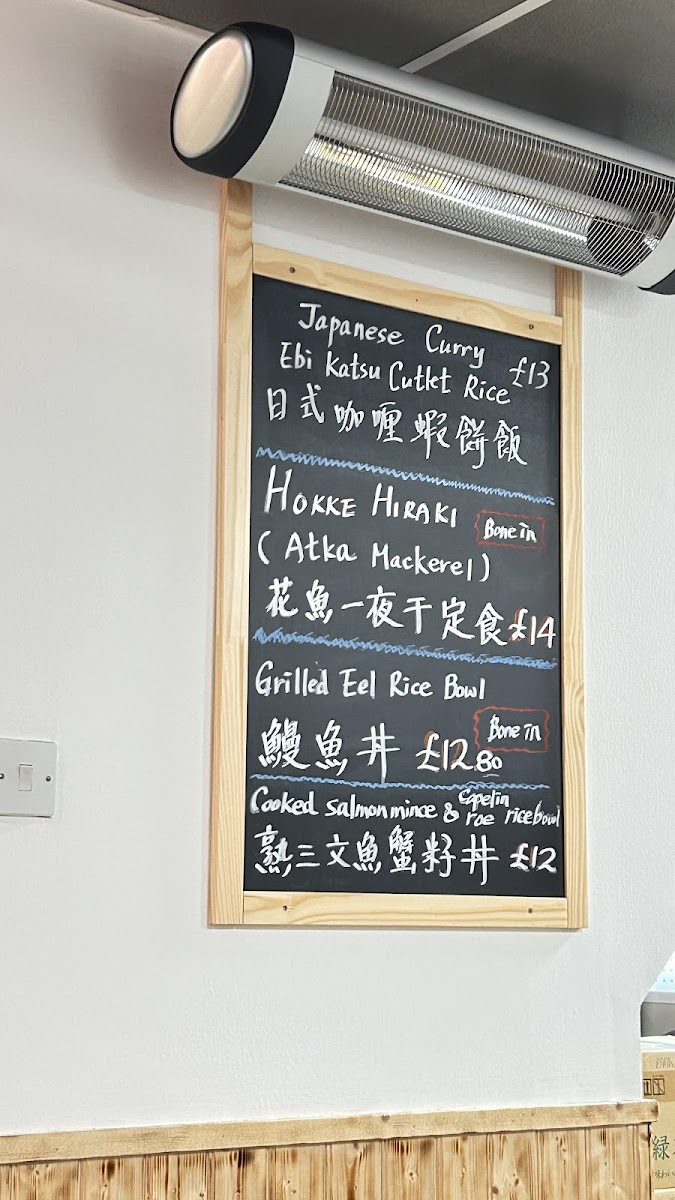 Japanese Curry
Ebi Katsu Cutlet Rice £13
日式咖喱蝦餅飯
HOKKE HIRAKI Bone in
(Atka Mackerel)
花魚一夜干定食 £14
Grilled Eel Rice Bowl
Bone in
鰻魚丼 £12.80
Cooked salmon mince & capelin roe rice bowl
熟三文魚蟹籽丼 £12
緑